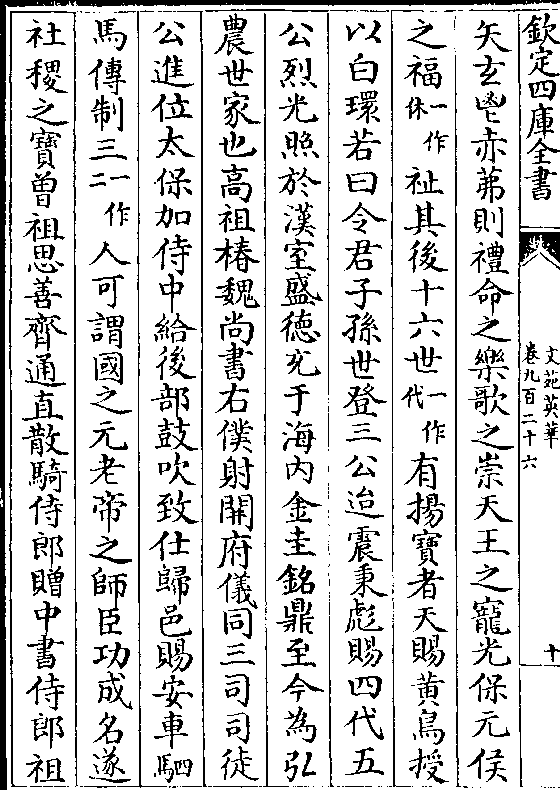 欽定四庫全書
文苑英華
卷九百二十六
十
矢玄鬯赤茀則禮命之樂歌之崇天王之寵光保元侯
之福一作休祉其後十六世一作代有揚寶者天賜黄鳥授
以白環若曰令君子孫世登三公迨震秉彪賜四代五
公烈光照於漢室盛徳充于海内金圭銘鼎至今為弘
農世家也高祖椿魏尚書右僕射開府儀同三司司徒
公進位太保加侍中給後部鼓吹致仕歸邑賜安車駟
馬傳制三一作二人可謂國之元老帝之師臣功成名遂
社稷之寶曾祖思善齊通直散騎侍郎贈中書侍郎祖